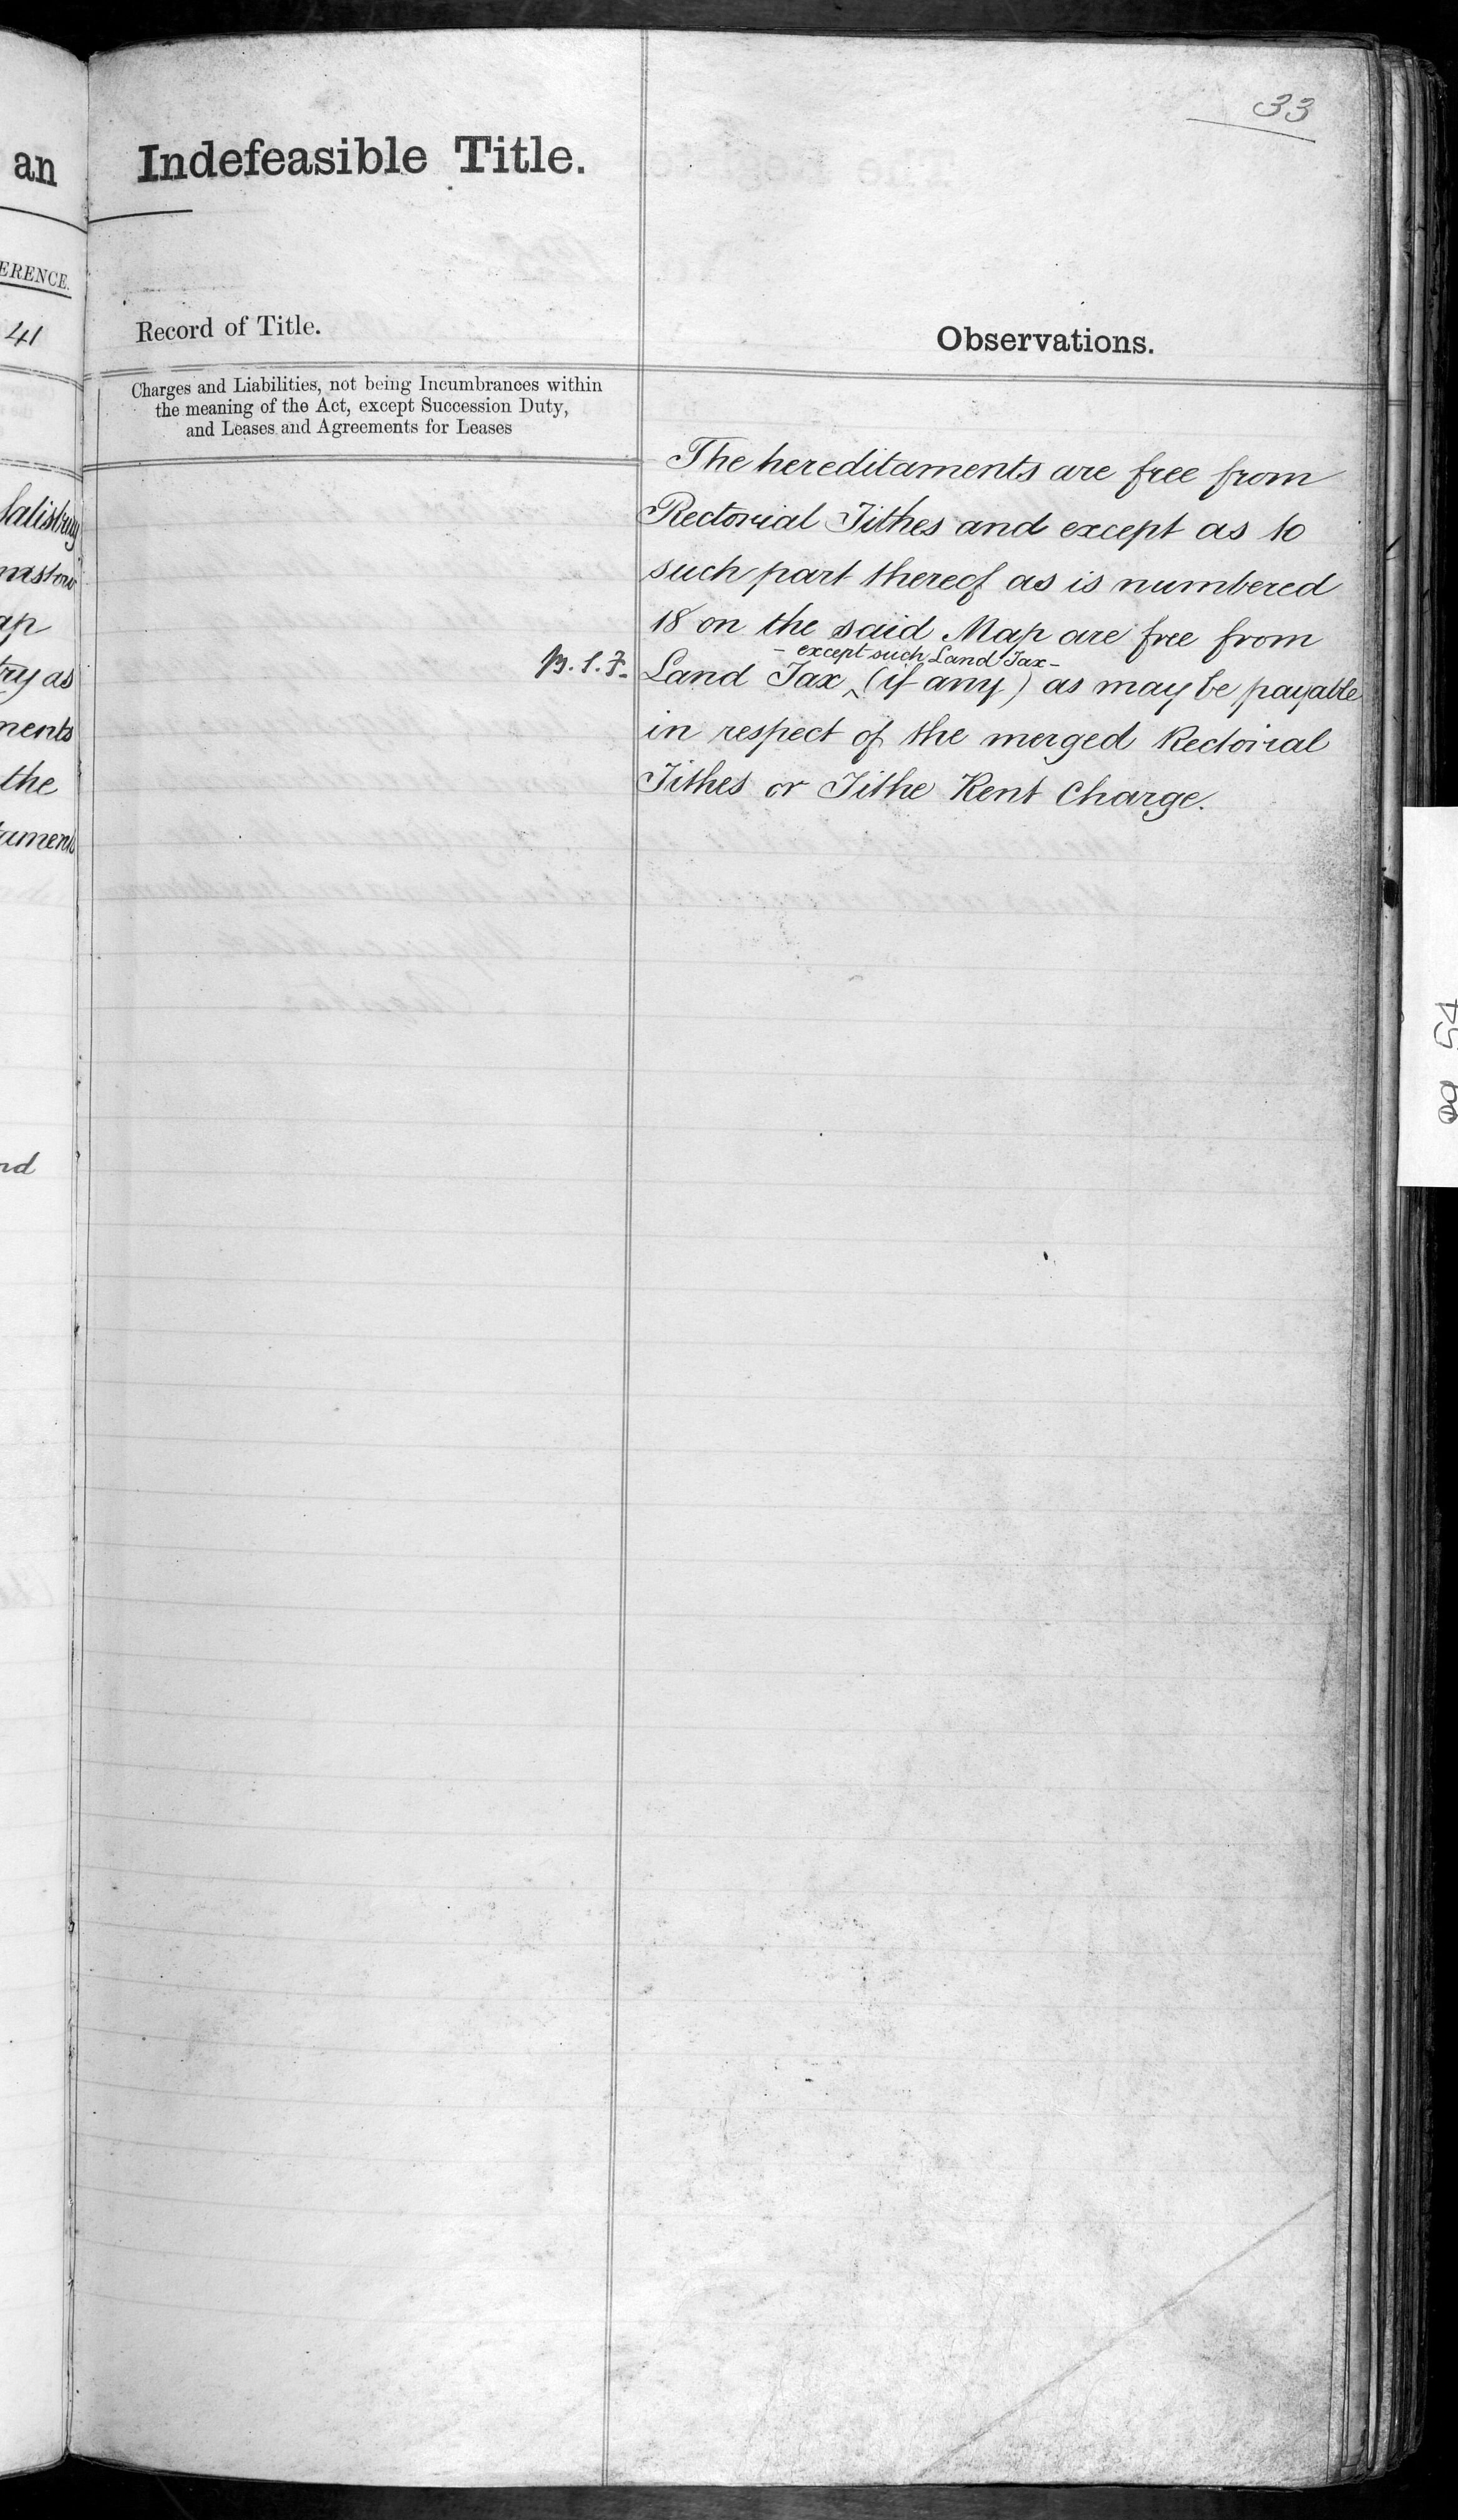 33
an
Indefeasible Title.
ERENCE.
41
Record of Title.
Observations.
Charges and Liabilities, not being Incumbrances within
the meaning of the Act, except Succession Duty,
and Leases and Agreements for Leases
Salisbury
ap
ry as
ments
the
aments
nd
The hereditaments are free from
Rectorial Tithes and except as to
such part thereof as is numbered
18 on the said Map are free from
- except such Land Tax -
Land Tax ‸ (if any) as may be payable
in respect of the merged Rectorial
Tithes or Tithe Rent Charge.
pg 54